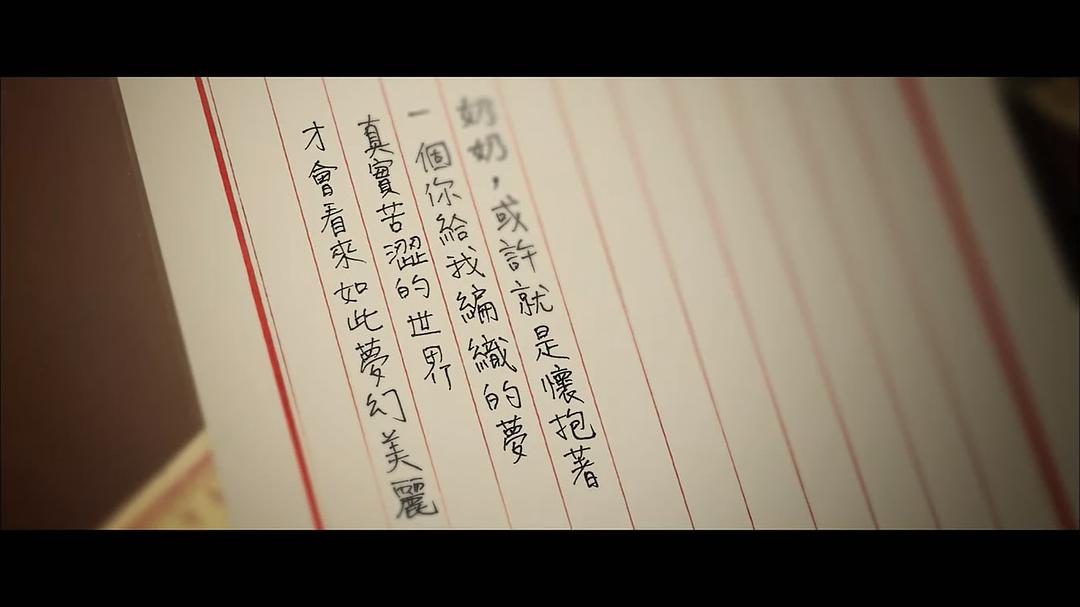 奶奶，或許就是懷抱著
一個你給我編織的夢
真實苦澀的世界
才會看來如此夢幻美麗